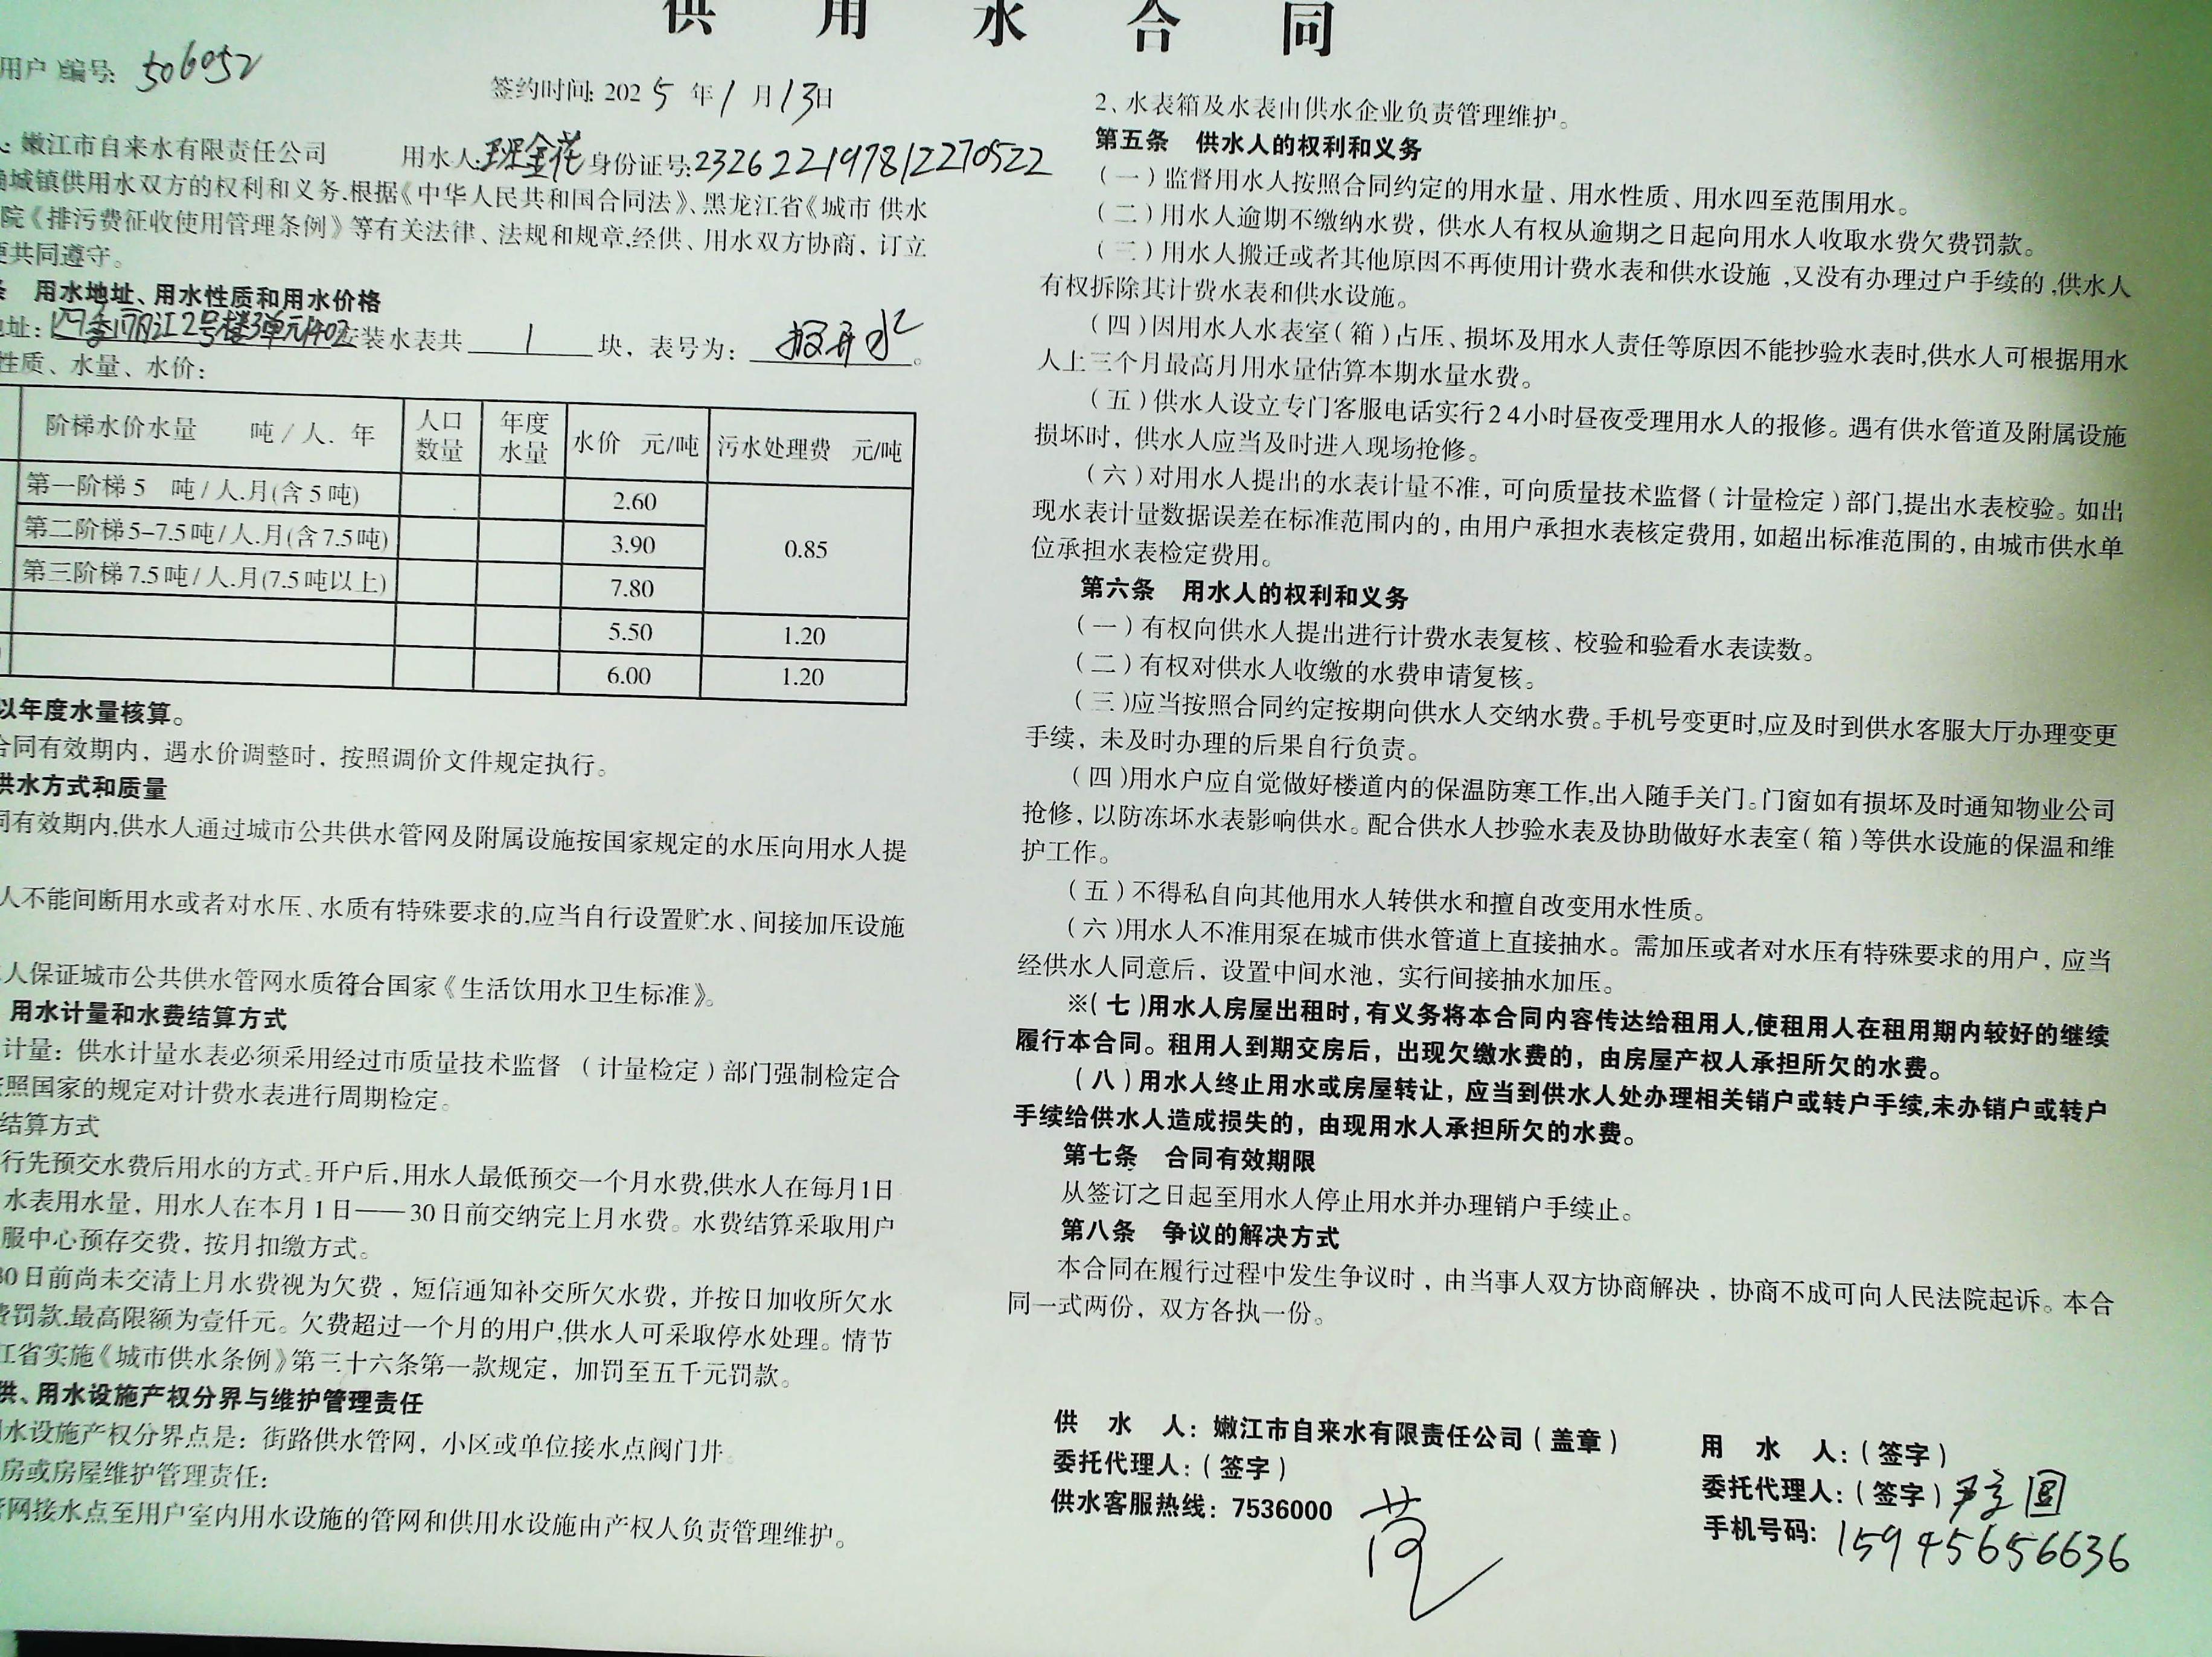 供用水合同
用户 编号: 506052
签约时间: 2025年1月13日
嫩江市自来水有限责任公司 用水人: 金花 身份证号: 232622197812270522
城镇供用水双方的权利和义务,根据《中华人民共和国合同法》、黑龙江省《城市 供水
院《排污费征收使用管理条例》等有关法律、法规和规章,经供、用水双方协商，订立
共同遵守。
用水地址、用水性质和用水价格
址: 四季 江2号楼3单元1402 安装水表共 1 块，表号为:
性质、水量、水价:
阶梯水价水量 吨/人.年 人口数量 年度水量 水价 元/吨 污水处理费 元/吨
第一阶梯5 吨/人.月(含5吨) 2.60 0.85
第二阶梯5-7.5吨/人.月(含7.5吨) 3.90
第三阶梯7.5吨/人.月(7.5吨以上) 7.80
5.50 1.20
6.00 1.20
以年度水量核算。
合同有效期内，遇水价调整时，按照调价文件规定执行。
供水方式和质量
同有效期内,供水人通过城市公共供水管网及附属设施按国家规定的水压向用水人提
人不能间断用水或者对水压、水质有特殊要求的,应当自行设置贮水、间接加压设施
人保证城市公共供水管网水质符合国家《生活饮用水卫生标准》。
用水计量和水费结算方式
计量: 供水计量水表必须采用经过市质量技术监督 （计量检定）部门强制检定合
照国家的规定对计费水表进行周期检定。
结算方式
行先预交水费后用水的方式。开户后,用水人最低预交一个月水费,供水人在每月1日
水表用水量，用水人在本月1日——30日前交纳完上月水费。水费结算采取用户
服中心预存交费，按月扣缴方式。
30日前尚未交清上月水费视为欠费，短信通知补交所欠水费，并按日加收所欠水
费罚款,最高限额为壹仟元。欠费超过一个月的用户,供水人可采取停水处理。情节
江省实施《城市供水条例》第三十六条第一款规定，加罚至五千元罚款。
供、用水设施产权分界与维护管理责任
水设施产权分界点是: 街路供水管网，小区或单位接水点阀门井。
房或房屋维护管理责任:
管网接水点至用户室内用水设施的管网和供用水设施由产权人负责管理维护。
2、水表箱及水表由供水企业负责管理维护。
第五条 供水人的权利和义务
（一）监督用水人按照合同约定的用水量、用水性质、用水四至范围用水。
（二）用水人逾期不缴纳水费，供水人有权从逾期之日起向用水人收取水费欠费罚款。
（三）用水人搬迁或者其他原因不再使用计费水表和供水设施,又没有办理过户手续的,供水人
有权拆除其计费水表和供水设施。
（四）因用水人水表室（箱）占压、损坏及用水人责任等原因不能抄验水表时,供水人可根据用水
人上三个月最高月用水量估算本期水量水费。
（五）供水人设立专门客服电话实行24小时昼夜受理用水人的报修。遇有供水管道及附属设施
损坏时，供水人应当及时进入现场抢修。
（六）对用水人提出的水表计量不准，可向质量技术监督（计量检定）部门,提出水表校验。如出
现水表计量数据误差在标准范围内的，由用户承担水表核定费用，如超出标准范围的，由城市供水单
位承担水表检定费用。
第六条 用水人的权利和义务
（一）有权向供水人提出进行计费水表复核、校验和验看水表读数。
（二）有权对供水人收缴的水费申请复核。
（三）应当按照合同约定按期向供水人交纳水费。手机号变更时,应及时到供水客服大厅办理变更
手续，未及时办理的后果自行负责。
（四）用水户应自觉做好楼道内的保温防寒工作,出入随手关门。门窗如有损坏及时通知物业公司
抢修，以防冻坏水表影响供水。配合供水人抄验水表及协助做好水表室（箱）等供水设施的保温和维
护工作。
（五）不得私自向其他用水人转供水和擅自改变用水性质。
（六）用水人不准用泵在城市供水管道上直接抽水。需加压或者对水压有特殊要求的用户，应当
经供水人同意后，设置中间水池，实行间接抽水加压。
※（七）用水人房屋出租时,有义务将本合同内容传达给租用人,使租用人在租用期内较好的继续
履行本合同。租用人到期交房后，出现欠缴水费的，由房屋产权人承担所欠的水费。
（八）用水人终止用水或房屋转让，应当到供水人处办理相关销户或转户手续,未办销户或转户
手续给供水人造成损失的，由现用水人承担所欠的水费。
第七条 合同有效期限
从签订之日起至用水人停止用水并办理销户手续止。
第八条 争议的解决方式
本合同在履行过程中发生争议时，由当事人双方协商解决，协商不成可向人民法院起诉。本合
同一式两份，双方各执一份。
供 水 人: 嫩江市自来水有限责任公司（盖章）
委托代理人:（签字）
供水客服热线: 7536000
用 水 人:（签字）
委托代理人:（签字）
手机号码: 15945656636